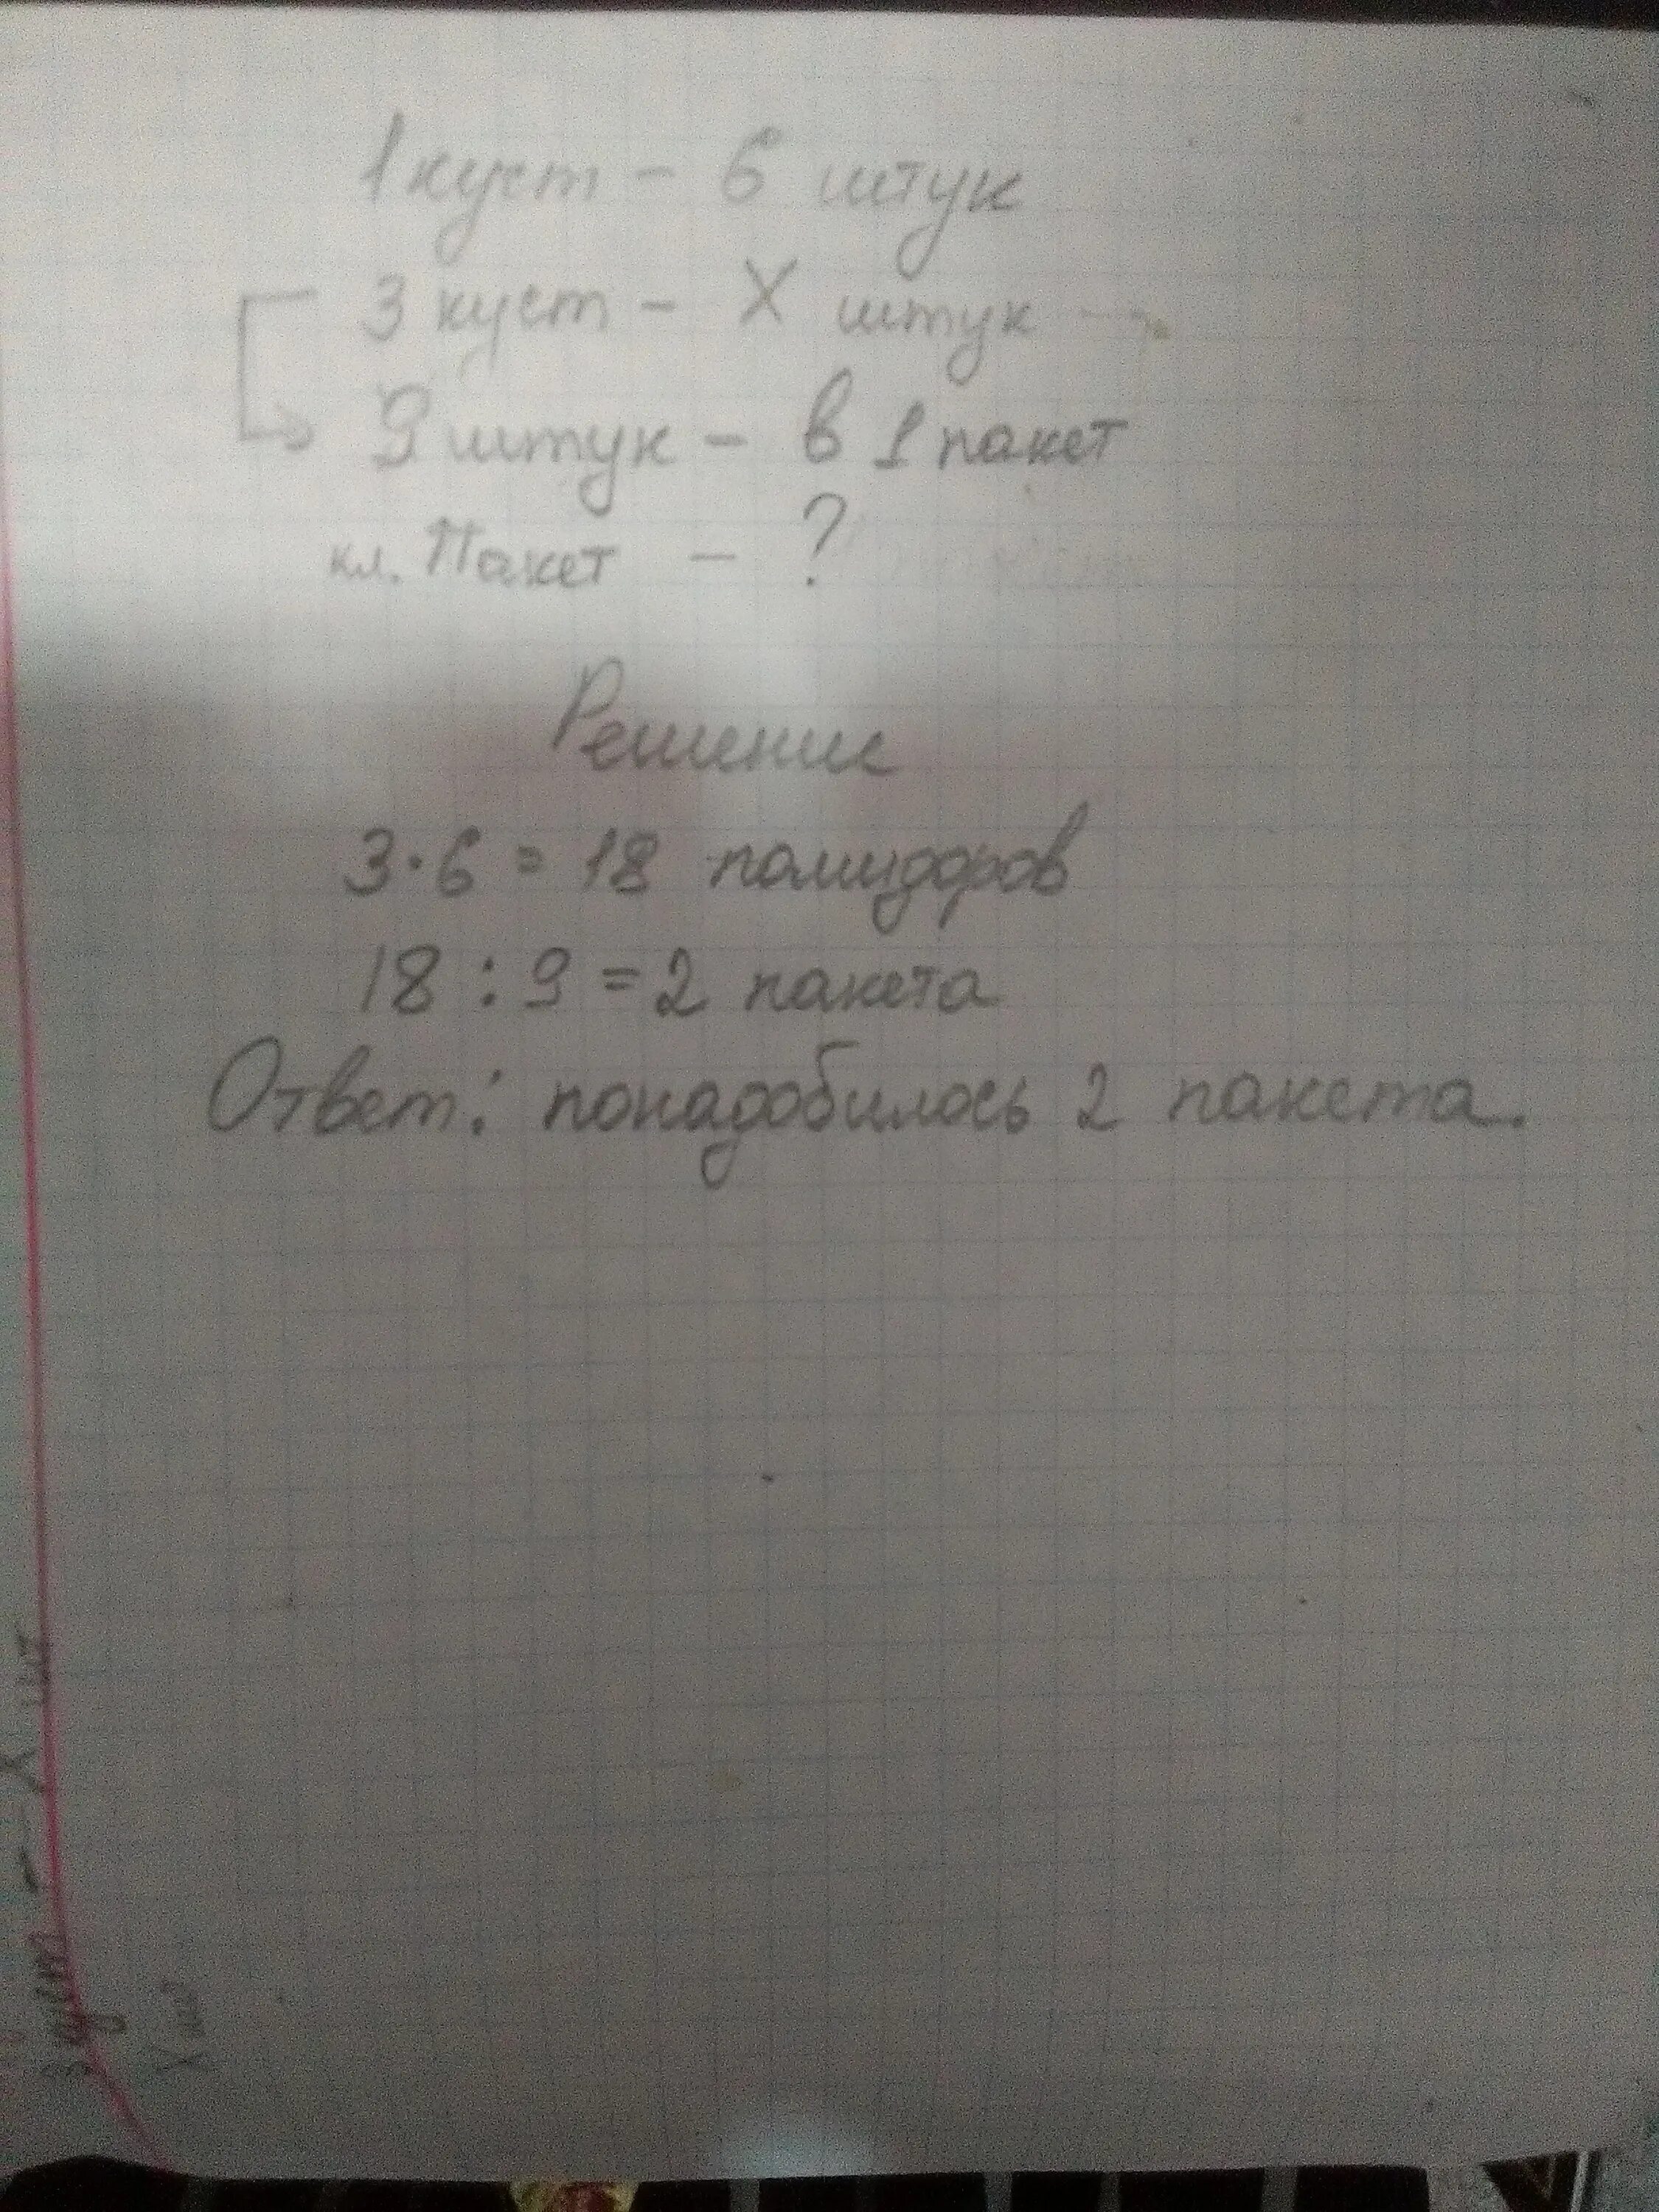 1 куст - 6 штук
3 куст - X штук
9 штук - в 1 пакет
кл. Пакет - ?
Решение
3·6 = 18 помидоров
18 : 9 = 2 пакета
Ответ: понадобилось 2 пакета.
3 куст - X шт
X шт